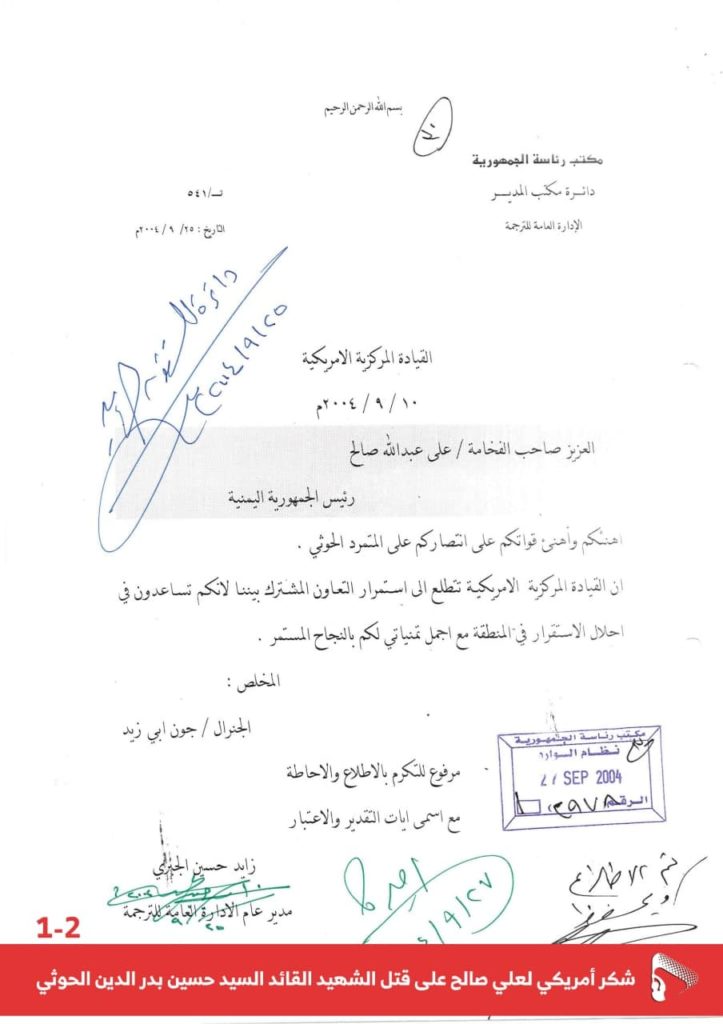 بسم الله الرحمن الرحيم
مكتب رئاسة الجمهورية
دائرة مكتب المدير
الإدارة العامة للترجمة
ت/٥٤١
التاريخ : ٢٥/ ٩ /٢٠٠٤م
دائرة
٢٠٠٤/٩/٢٥
القيادة المركزية الامريكية
١٠ / ٩ / ٢٠٠٤م
العزيز صاحب الفخامة / على عبدالله صالح
رئيس الجمهورية اليمنية
اهنئكم وأهنئ قواتكم على انتصاركم على المتمرد الحوثي .
ان القيادة المركزية الامريكية تتطلع الى استمرار التعاون المشترك بيننا لانكم تساعدون في
احلال الاستقرار في المنطقة مع اجمل تمنياتي لكم بالنجاح المستمر .
المخلص :
الجنرال / جون ابي زيد
مرفوع للتكرم بالاطلاع والاحاطة
مع اسمى ايات التقدير والاعتبار
مكتب رئاسة الجمهورية
نظام الوارد
27 SEP 2004
الرقم
زايد حسين
مدير عام الادارة العامة للترجمة
تم الاطلاع
ويحفظ
٩/٢٧
1-2
شكر أمريكي لعلي صالح على قتل الشهيد القائد السيد حسين بدر الدين الحوثي